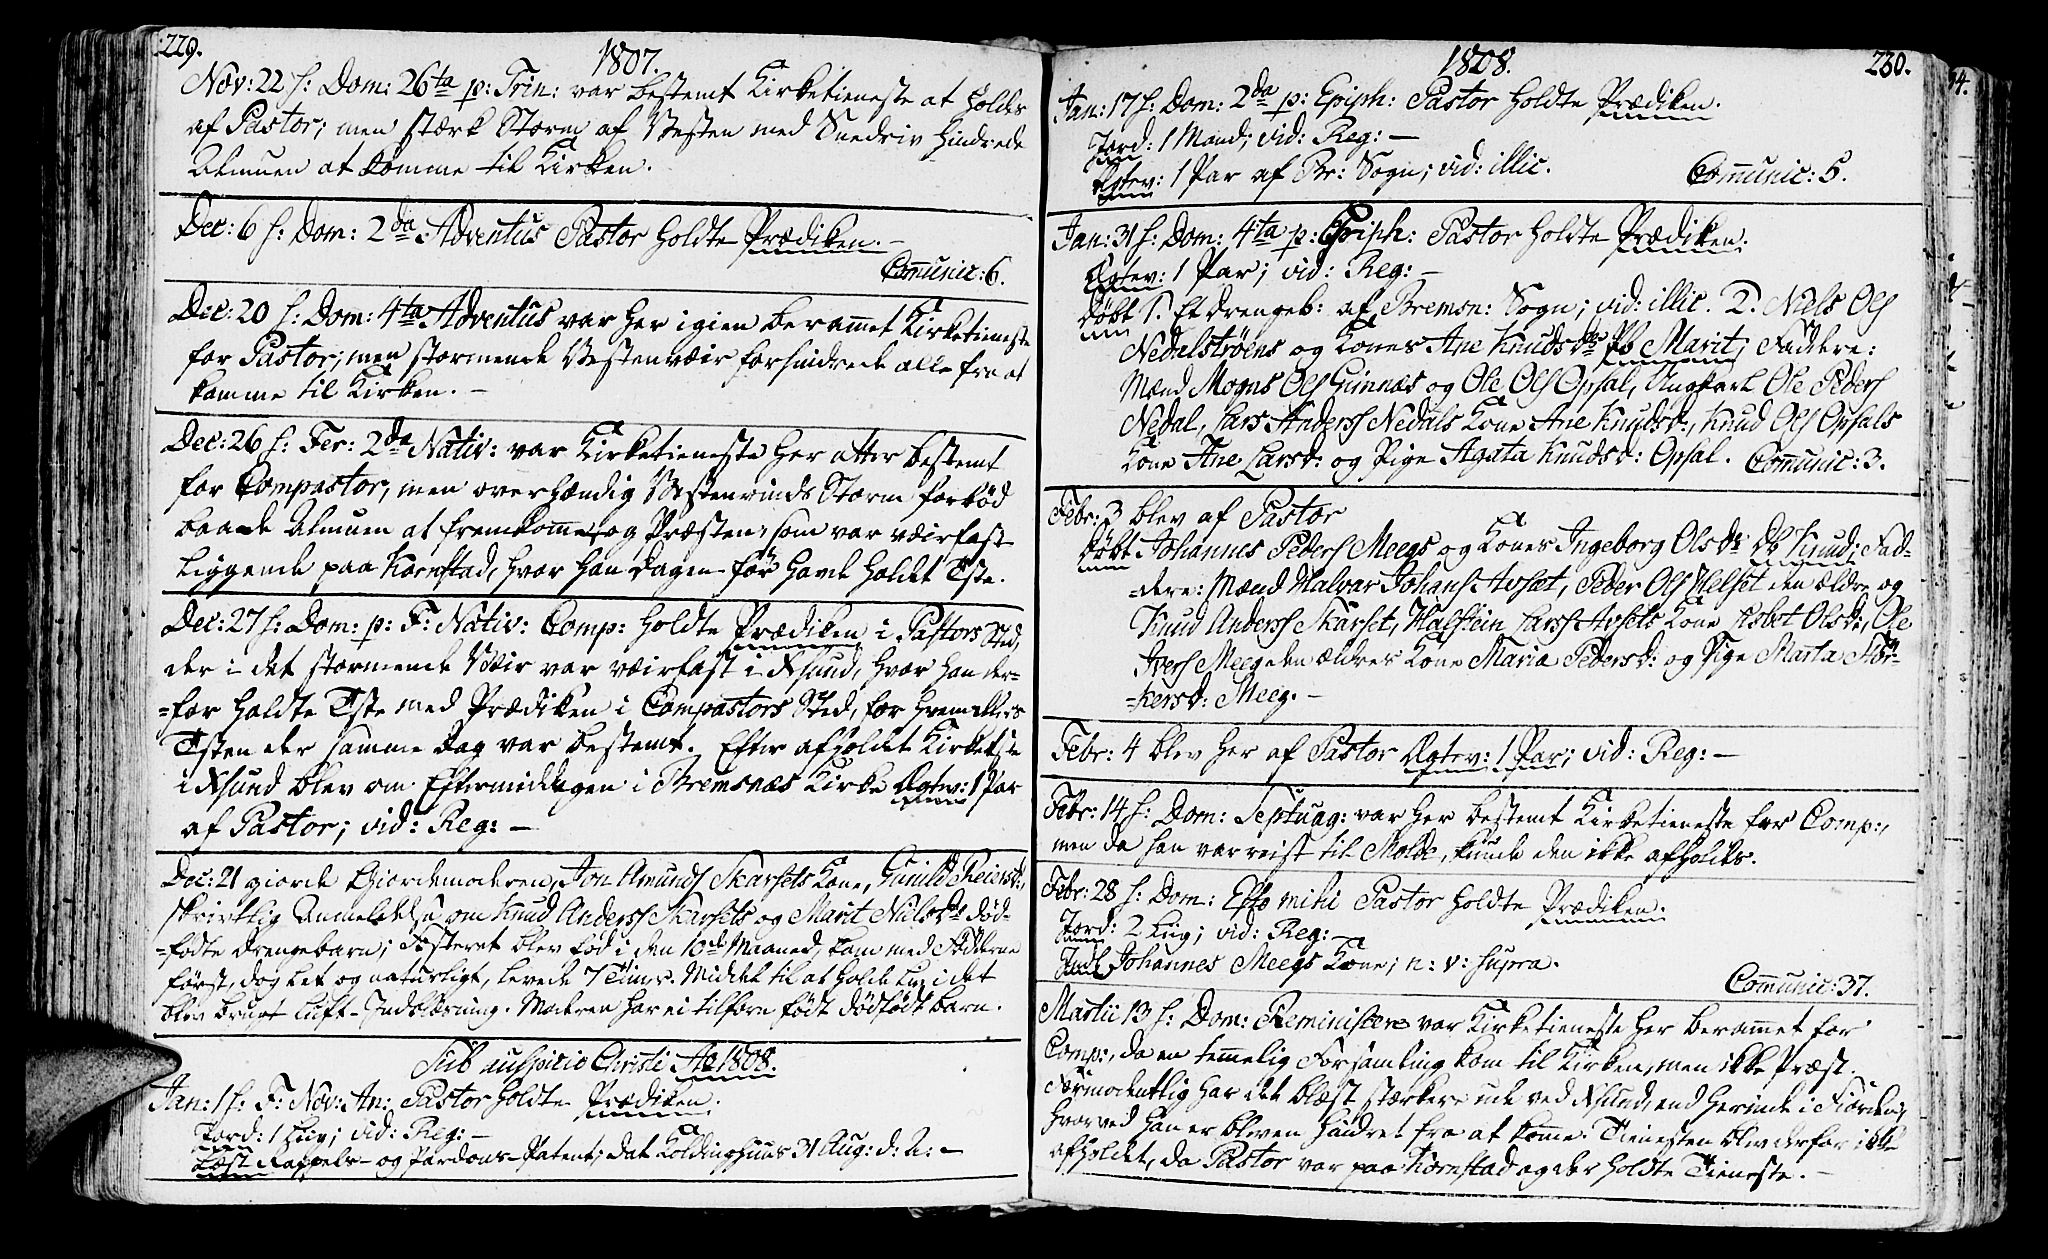 229.
1807.
Nov: 22 h: Dom: 26ta p: Trin: var bestemt Kirketieneste at holdes
af Pastor; men stærk Storm af Vesten med Sneedriv hindrede
Almuen at komme til Kirken.
Dec: 6 h: Dom: 2da Adventus Pastor holdte Prædiken. -
Communic: 6.
Dec: 20 h: Dom: 4ta Adventus var her igien berammet Kirketieneste
for Pastor; men stormende Vestenveir forhindrede alle fra at
komme til Kirken. -
Dec: 26 h: Fer: 2da Nativ: var Kirketieneste her atter bestemt
for Compastor, men overhændig Vestenvinds Storm forbød
baade Almuen at fremkomme og Præsten, som var veirfast
liggende paa Kornstad, hvor han Dagen før havde holdet Tste.
Dec: 27 h: Dom: p: F: Nativ: Comp: holdte Prædiken i Pastors Sted,
der i det stormende Veir var veirfast i Xsund, hvor han der-
-for holdte Tste med Prædiken i Compastors Sted, for hvem ellers
Tsten der samme Dag var bestemt. Efter afholdet Kirketste
i Xsund blev om Eftermiddagen i Bremsnæs Kirke Ægtev: 1 Par
af Pastor; vid: Reg: -
Dec: 21 giorde Giordemoderen, Jon Amunds Skarsets Kone, Gunild Reiersd:,
skriftlig Anmeldelse om Knud Anders Skarsets og Marit Nielsdr død-
-fødte Drengebarn; Fosteret blev fød i den 10de Maaned, kom med Fødderne
først, dog let og naturligt, levede 7 Timer. Midlet til at holde Liv i det
blev brugt Luft-Indblæsning. Moderen har ei tilforn født dødfødt Barn.
Sub auspicio Christi Ao 1808.
Jan: 1 h: F: Nov: An: Pastor holdte Prædiken.
Jord: 1 Liig; vid: Reg: -
Læst Rappels- og Pardons-Patent; dat Koldinghuus 31 Aug: d: A: -
1808.
230.
Jan: 17 h: Dom: 2da p: Epiph: Pastor holdte Prædiken.
Jord: 1 Mand; vid: Reg: -
Ægtev: 1 Par af Br: Sogn; vid: illic.
Communic: 5.
Jan: 31 h: Dom: 4ta p: Epiph: Pastor holdte Prædiken.
Ægtev: 1 Par; vid: Reg: -
Døbt 1. Et Drengeb: af Bremsn: Sogn; vid: illic. 2. Niels Ols
Nedalstrøens og Kones Ane Knudsdr Pb Marit; Faddere:
Mænd Mogns Ols Gunnæs og Ole Ols Opsal, Ungkarl Ole Peders
Nedal, Lars Anders Nedals Kone Ane Knudsd:, Knud Ols Opsals
Kone Ane Larsd: og Pige Agata Knudsd: Opsal.
Communic: 3.
Febr: 3 blev af Pastor
Døbt Johannes Peders Meegs og Kones Ingeborg Olsdr Db Knud; Fad-
-dere: Mænd Halvar Johans Avset, Peder Ols Helset den ældre og
Knud Anders Skarset, Halstein Lars Avsets Kone Lisbet Olsdr, Ole
Ivers Meeg den ældres Kone Maria Pedersd: og Pige Marta Stør-
-kersd: Meeg. -
Febr: 4 blev her af Pastor Ægtev: 1 Par; vid: Reg: -
Febr: 14 h: Dom: Septuag: var her bestemt Kirketieneste for Comp:,
men da han var reist til Molde, kunde den ikke afholdes.
Febr: 28 h: Dom: Esto mihi Pastor holdte Prædiken.
Jord: 2 Liig; vid: Reg: -
Indl Johannes Meegs Kone; n: v: supra.
Communic: 37.
Martii 13 h: Dom: Reminiscere var Kirketieneste her berammet for
Comp:, da en temmelig Forsamling kom til Kirken, men ikke Præst.
Formodentlig har det blæst stærkere ude ved Xsund, end herinde i Fiorden,
hvorved han er bleven hindret fra at komme. Tienesten blev derfor ikke
afholdet, da Pastor var paa Kornstad og der holdte Tieneste. -